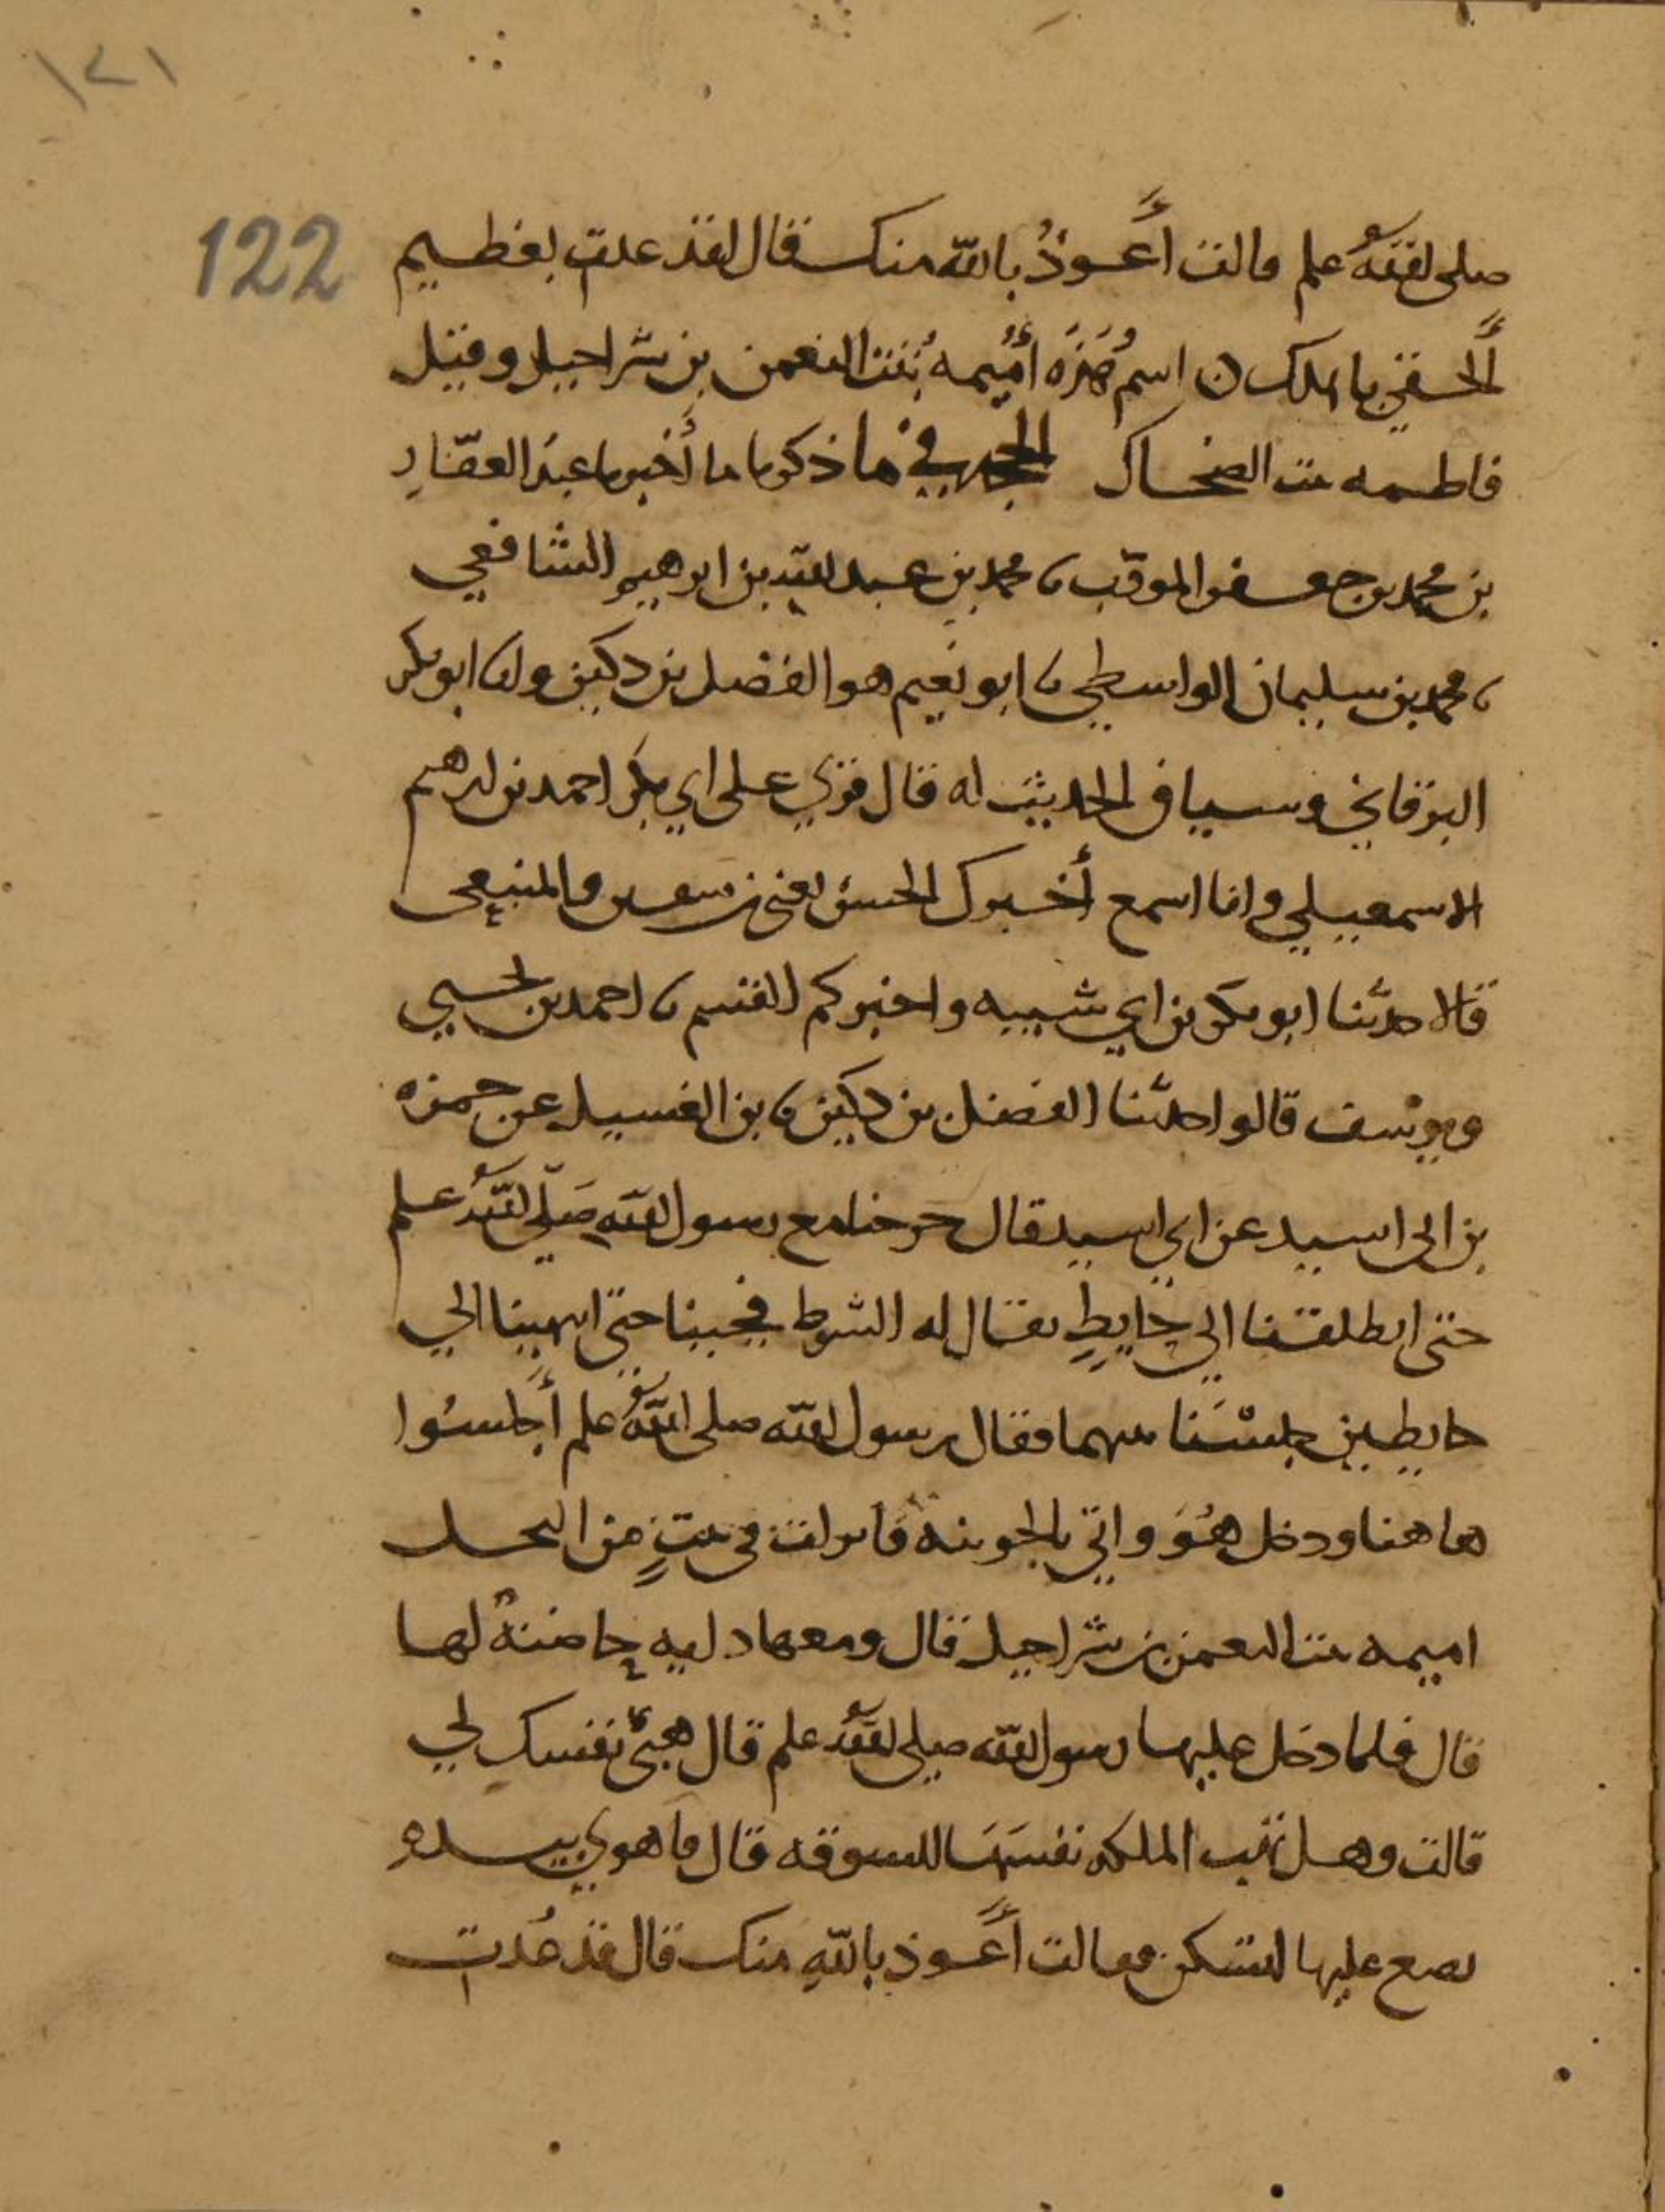 ١٢١
122
صلى الله عليه وسلم قالت أعوذُ بالله منك فقال لقد عذت بعظيم
ألحقي باهلك ن اسم هَذِه أُمَيمه بنت النعمن بن شراحيل وقيل
فاطمه بنت الضحاك الحجه في ما ذكرنا ما أخبرنا عبد الغفار
بن محمد بن جعفر المودّب نا محمد بن عبد الله بن ابرهيم الشافعي
نا محمد بن سليمان الواسطي نا ابو نعيم هو الفضل بن دكين ونا ابو بكر
البرقاني وسياق الحديث له قال قري على ابي بكر احمد بن ابرهيم
الاسمعيلي وانا اسمع أخبرك الحسن يعني بن سفين والمنيعي
قالا حدثنا ابو بكر بن ابي شيبه واخبركم القسم نا احمد بن
ويوسف قالوا حدثنا الفضل بن دكين نا بن الغسيل عن حمزه
بن ابي اسيد عن ابي اسيد قال خرجنا مع رسول الله صَلّى الله عليه وسلم
حتى انطلقنا الى حايطٍ يقال له الشوط فجينا حتى انتهينا الى
حايطين جلسْنا بينهما فقال رسول الله صلى الله عليه وسلم أجلسُوا
هاهنا ودخل هُوَ واتي بالجونيه فانزلت في بيتٍ من النخل
اميمه بنت النعمن بن شراحيل قال ومعها دايه حاضنةٌ لها
قال فلما دخل عليها رسول الله صلى الله عليه وسلم قال هبي نفسك لي
قالت وهل تهب الملكه نفسَهَا للسوقه قال فاهوى بيده
يضع عليها لتسكن فقالت أعوذ بالله منك قال قد عُذت